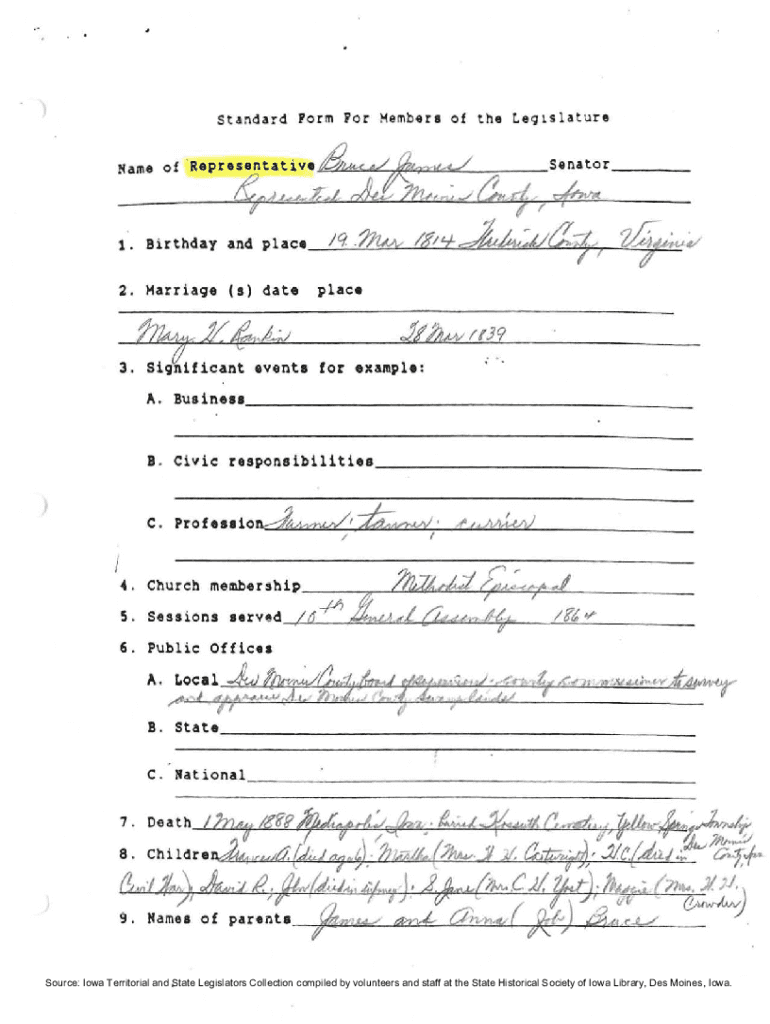 Standard Form For Members of the Legislature
Name of Representative Bruce James Senator
Represented Des Moines County, Iowa
1. Birthday and place 19 Mar 1814 Frederick County, Virginia
2. Marriage (s) date place
Mary V. Rankin 28 Mar 1839
3. Significant events for example:
A. Business
B. Civic responsibilities
C. Profession Farmer; tanner; currier
4. Church membership Methodist Episcopal
5. Sessions served 10th General Assembly 1864
6. Public Offices
A. Local Des Moines County board of Supervisors; county commissioner to survey
and appraise Des Moines County Swamplands
B. State
C. National
7. Death 1 May 1888 Mediapolis, Iowa; buried Kossuth Cemetery, Yellow Springs Township
Des Moines
8. Children (died age 6); Martha (Mrs. H. H. Cartwright); H.C. (died in County, Iowa
Civil War); David R.; John (died in infancy); S. Jane (Mrs. C. H. Yost); Maggie (Mrs. H. H.
Crowder)
9. Names of parents James and Anna (Job) Bruce
Source: Iowa Territorial and State Legislators Collection compiled by volunteers and staff at the State Historical Society of Iowa Library, Des Moines, Iowa.